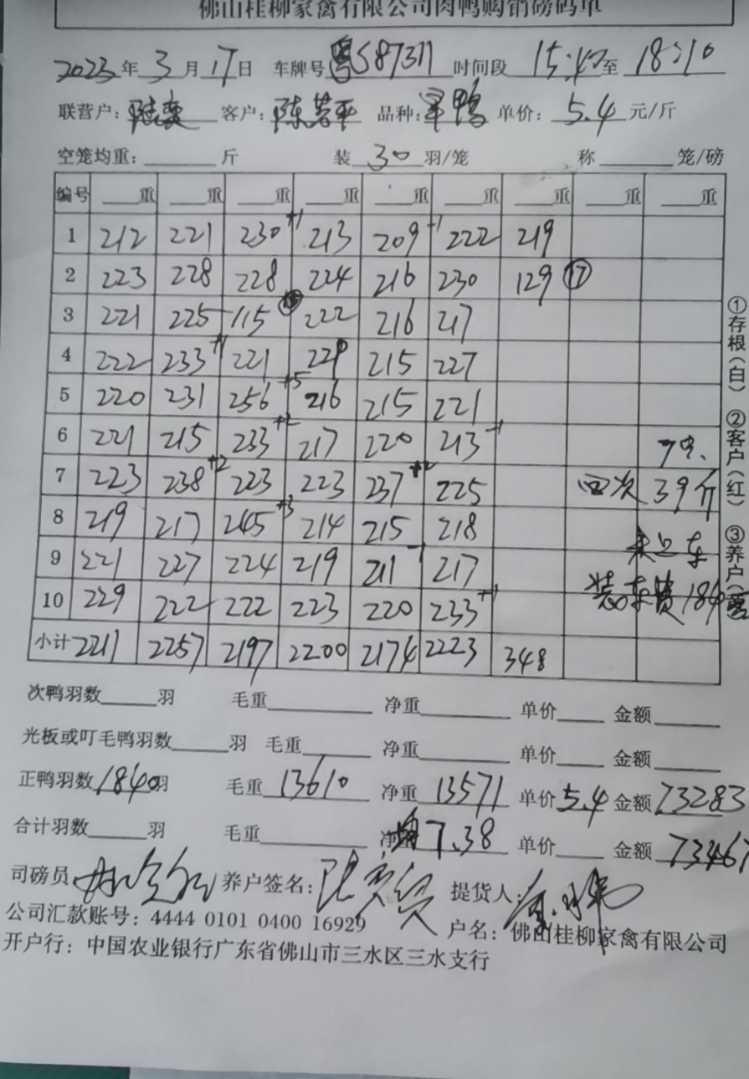 佛山桂柳家禽有限公司肉鸭购销磅码单
2023年3月17日 车牌号粤S87311 时间段15:42至18:10
联营户: 客户:陈 平 品种: 鸭 单价:5.4元/斤
空笼均重:斤 装30羽/笼 称笼/磅
编号 重 重 重 重 重 重 重 重 重
1 212 221 230+1 213 209-1 222 219
2 223 228 228 224 216 230 129 ⑰
3 221 225 115 222 216 217
4 222 233+1 221 229 215 227
5 220 231 256+5 216 215 221
6 221 215 233+2 217 220 213-1 7只.
7 223 238+2 223 223 237+2 225 次 39斤
8 219 217 245+3 214 215 218 未上车
9 221 227 224 219 211-1 217
10 229 222 222 223 220 233+1 装车费184
小计 2211 2257 2197 2200 2174 2223 348
①存根(白) ②客户(红) ③养户(
次鸭羽数羽 毛重 净重 单价 金额
光板或叮毛鸭羽数羽 毛重 净重 单价 金额
正鸭羽数1840羽 毛重13610 净重13571 单价5.4 金额73283
合计羽数羽 毛重 净 均7.38 单价 金额73467
司磅员 养户签名: 提货人:
公司汇款账号:4444 0101 0400 16929 户名:佛山桂柳家禽有限公司
开户行:中国农业银行广东省佛山市三水区三水支行